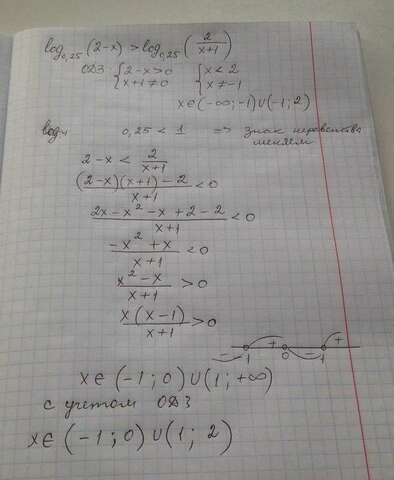 log₀,₂₅(2-x) > log₀,₂₅(2/(x+1))
ОДЗ {2-x>0 {x<2
{x+1≠0 {x≠-1
x∈(-∞;-1)∪(-1;2)
0,25 < 1 => Знак неравенства
меняем
2-x < 2/(x+1)
((2-x)(x+1)-2)/(x+1) < 0
(2x-x²-x+2-2)/(x+1) < 0
(-x²+x)/(x+1) < 0
(x²-x)/(x+1) > 0
(x(x-1))/(x+1) > 0
- + - +
-1 0 1
x∈(-1;0)∪(1;+∞)
с учетом ОДЗ
x∈(-1;0)∪(1;2)